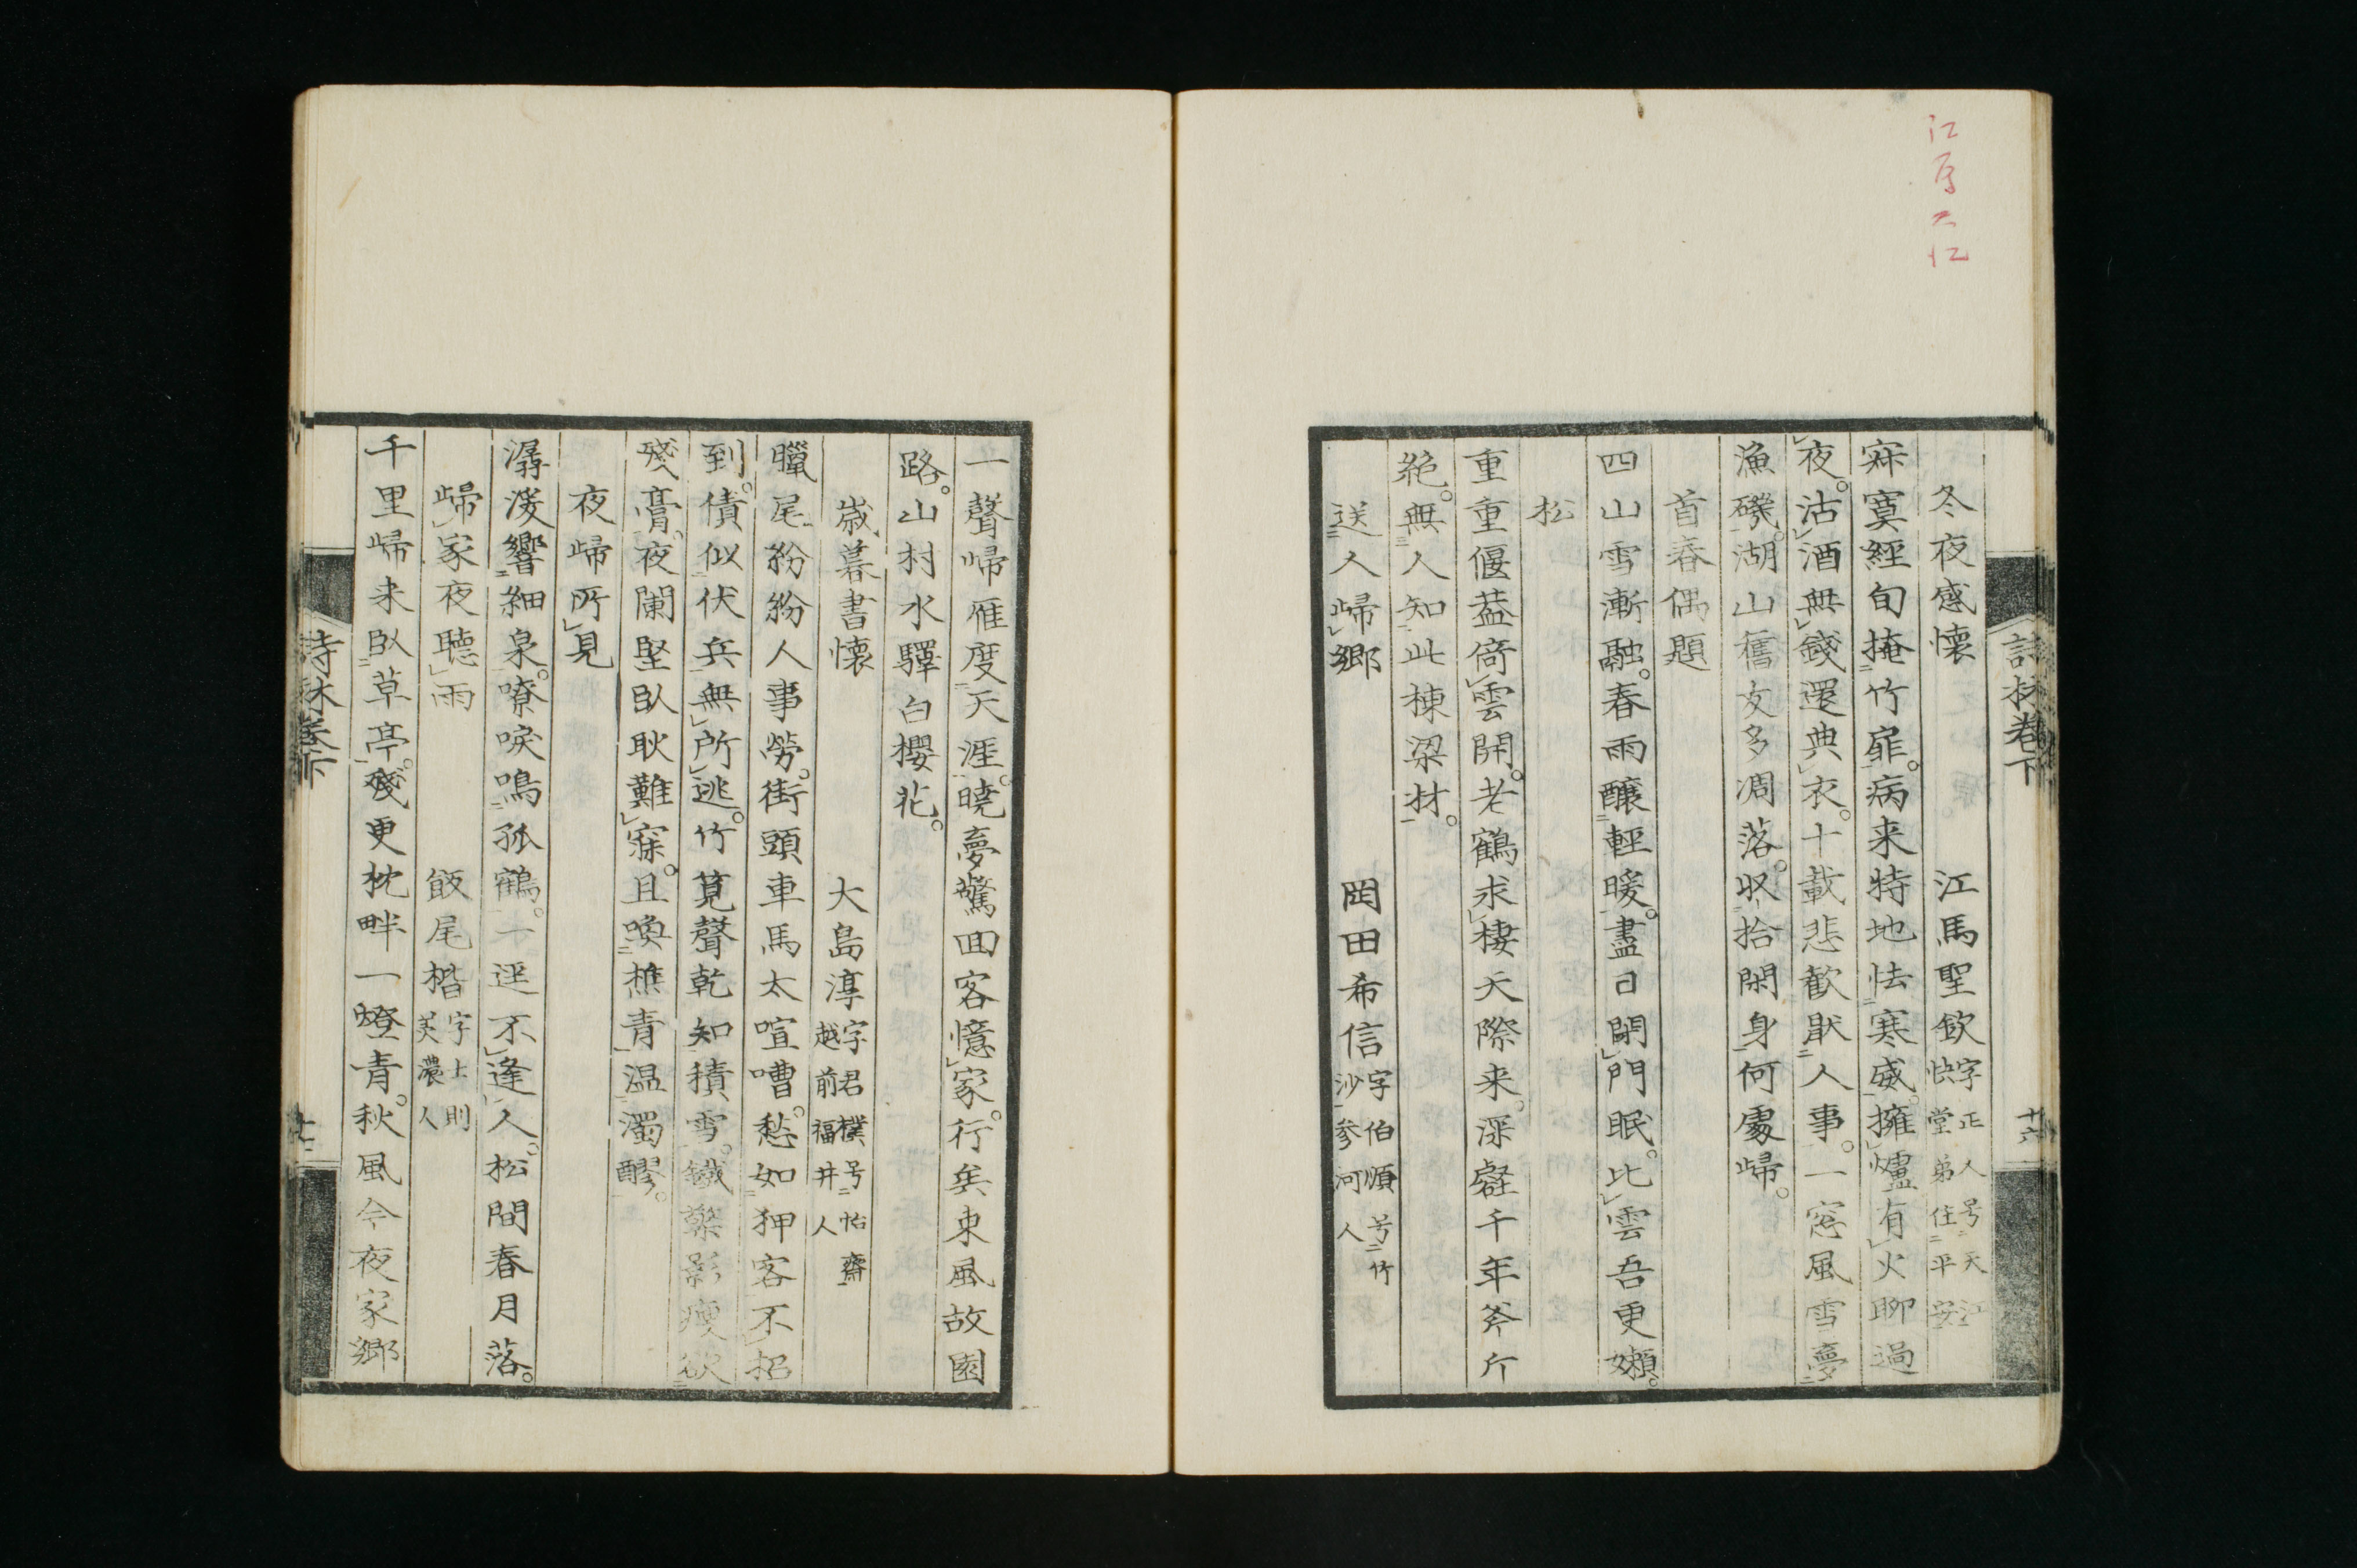 江原大仁
詩林卷下
十六
冬夜感懷 江馬聖欽 字正人号天江快堂弟住平安
寂寞經旬掩竹扉。病来特地怯寒威。擁爐有火聊過
夜。沽酒無錢還典衣。十載悲歡猒人事。一窓風雪夢
漁磯。湖山舊友多凋落。収拾閑身何處歸。
首春偶題
四山雪漸融。春雨釀輕暖。盡日閉門眠。比雲吾更嬾。
松
重重偃葢倚雲開。老鶴求棲天際来。深壑千年斧斤
絶。無人知此棟梁材。
送人歸郷 岡田希信 字伯順号竹沙參河人
一聲歸雁度天涯。曉夢驚回客憶家。行矣東風故園
路。山村水驛白櫻花。
歳暮書懷 大島淳 字君樸号怡齋越前福井人
臘尾紛紛人事勞。街頭車馬太喧嘈。愁如狎客不招
到。債似伏兵無所逃。竹筧聲乾知積雪。鐵檠影瘦欲
殘膏。夜闌堅臥耿難寐。且喚樵青温濁醪。
夜歸所見
潺湲響細泉。嘹唳鳴孤鶴。一逕不逢人。松間春月落。
歸家夜聽雨 飯尾楷 字士則美濃人
千里歸来臥草亭。殘更枕畔一燈青。秋風今夜家郷
詩林卷下